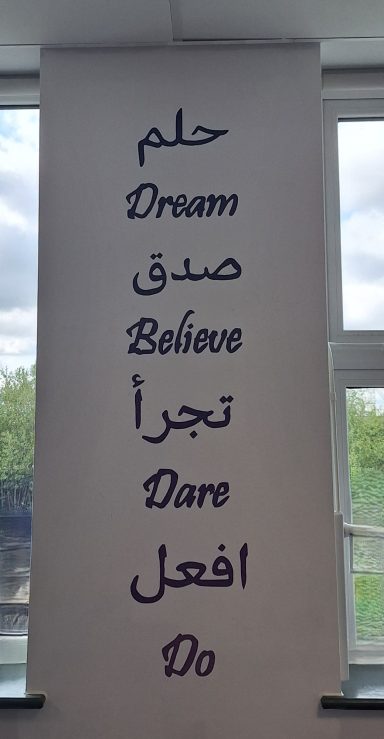 حلم
Dream
صدق
Believe
تجرأ
Dare
افعل
Do